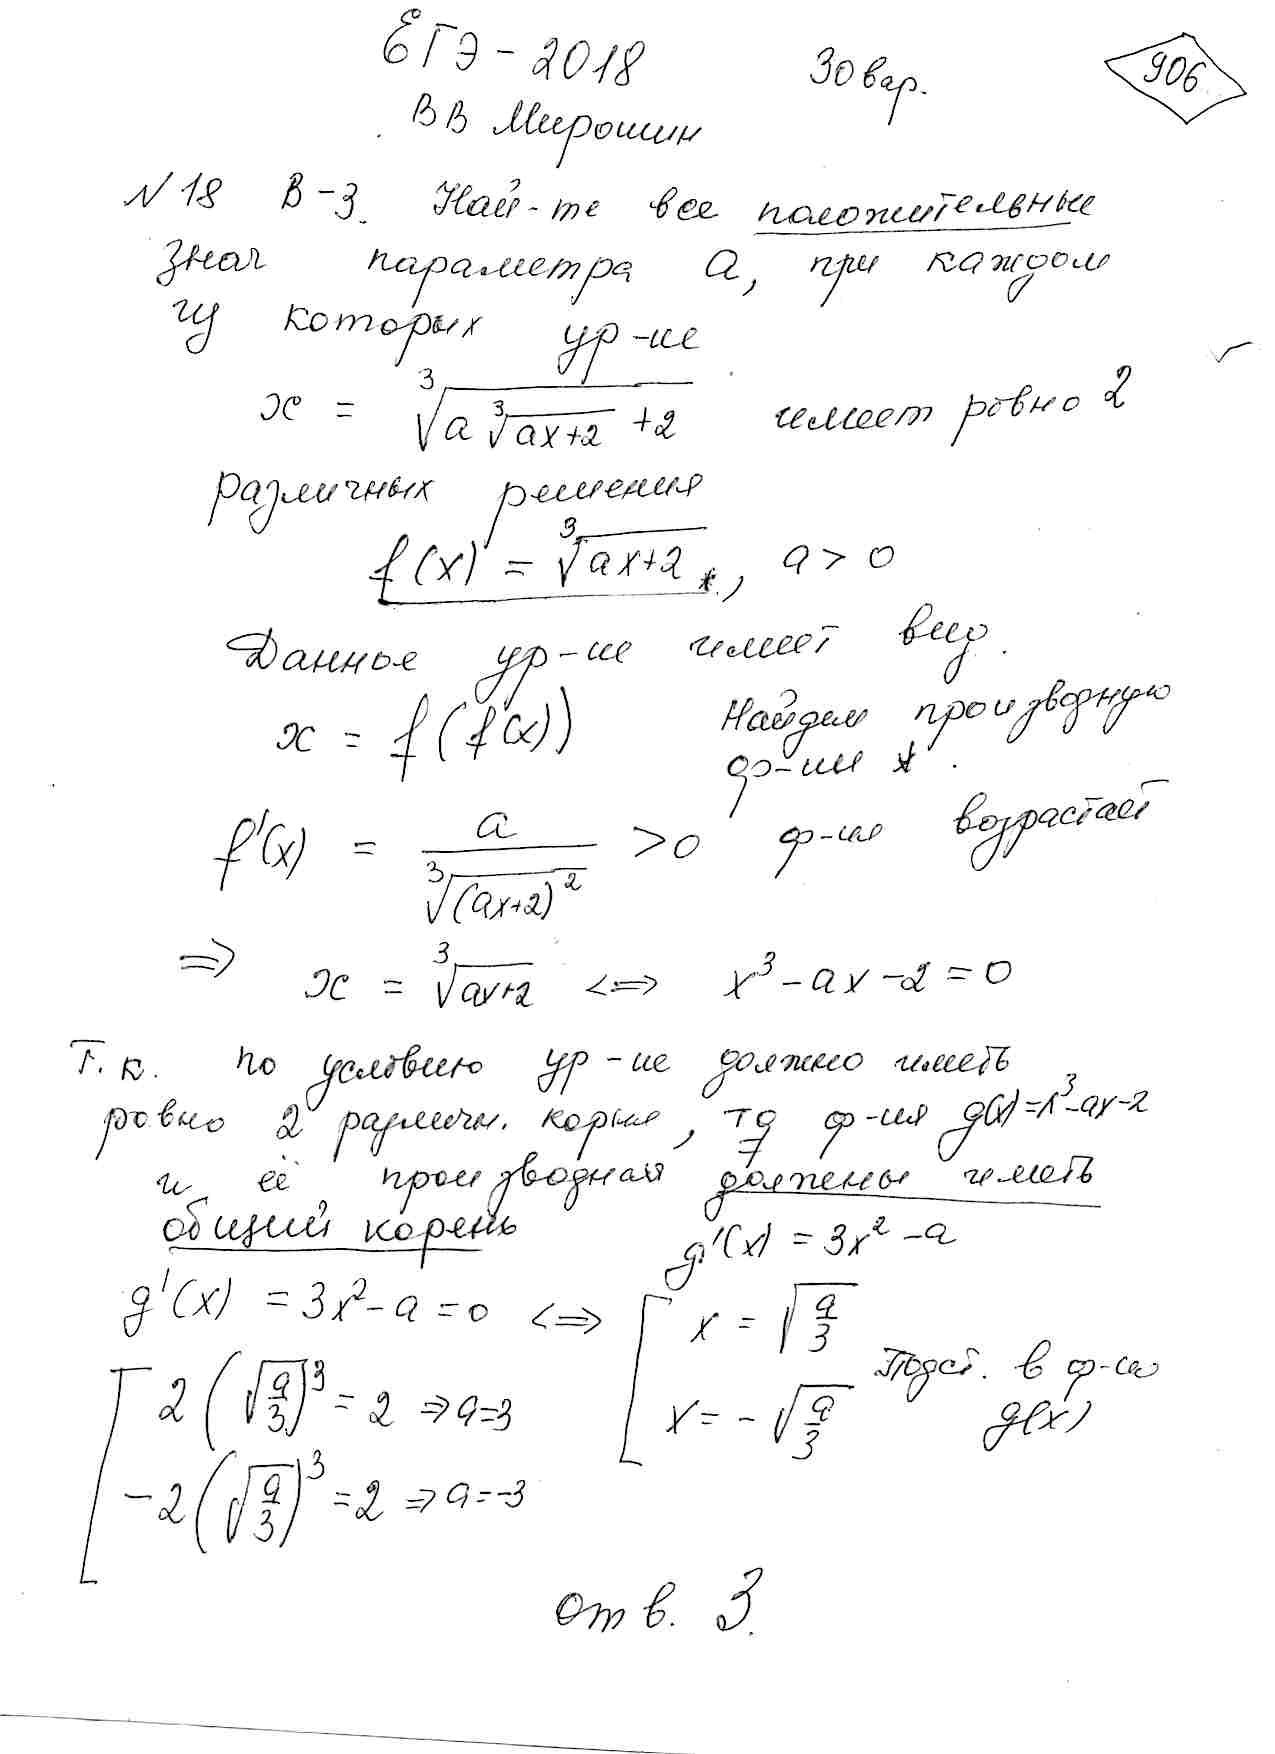 ЕГЭ - 2018 30 вар. 906
ВВ Мирошин
N 18 В-3. Най-те все положительные
знач параметра a, при каждом
из которых ур-ие
x = ∛(a∛(ax+2) +2) имеет ровно 2
различных решения
f(x) = ∛(ax+2) *, a > 0
Данное ур-ие имеет вид.
x = f(f(x)) Найдем производную
ф-ии *.
f'(x) = a/∛((ax+2)²) >0 ф-ия возрастает
=> x = ∛(ax+2) <=> x³ - ax - 2 = 0
Т.к. по условию ур-ие должно иметь
ровно 2 различн. корня, то ф-ия g(x)=x³-ax-2
и её производная должны иметь
общий корень
g'(x) = 3x² - a
g'(x) = 3x² - a = 0 <=> [ x = √(a/3)
x = - √(a/3) Подст. в ф-ию
g(x)
[ 2(√(a/3))³ = 2 => a=3
-2(√(a/3))³ = 2 => a=-3
отв. 3.